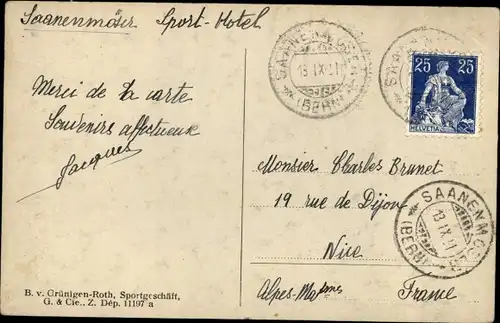 Saanenmöser Sport-Hotel
Merci de la carte
Souvenirs affectueux
Jacques
B. v. Grünigen-Roth, Sportgeschäft,
G. & Cie., Z. Dép. 11197 a
SAANENMÖSER
13. IX.
(BERN)
25 25
HELVETIA
Monsieur Charles Brunet
19 rue de Dijon
Nice
Alpes-Mames
France
SAANENMÖSER
13. IX.
(BERN)